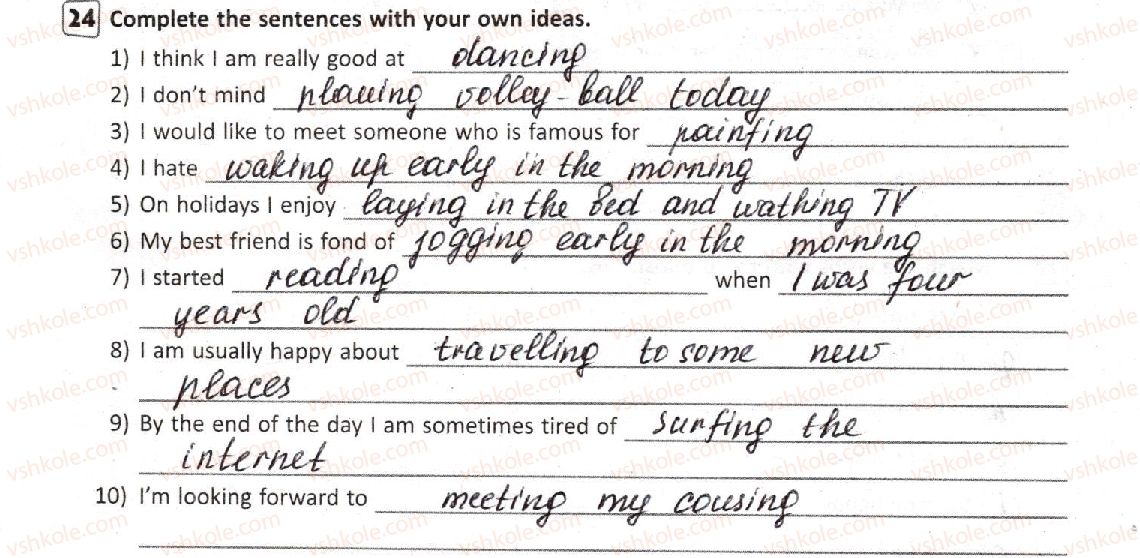 24 Complete the sentences with your own ideas.
1) I think I am really good at dancing
2) I don't mind plauing volley-ball today
3) I would like to meet someone who is famous for painting
4) I hate waking up early in the morning
5) On holidays I enjoy laying in the bed and wathing TV
6) My best friend is fond of jogging early in the morning
7) I started reading when I was four
years old
8) I am usually happy about travelling to some new
places
9) By the end of the day I am sometimes tired of surfing the
internet
10) I'm looking forward to meeting my cousing